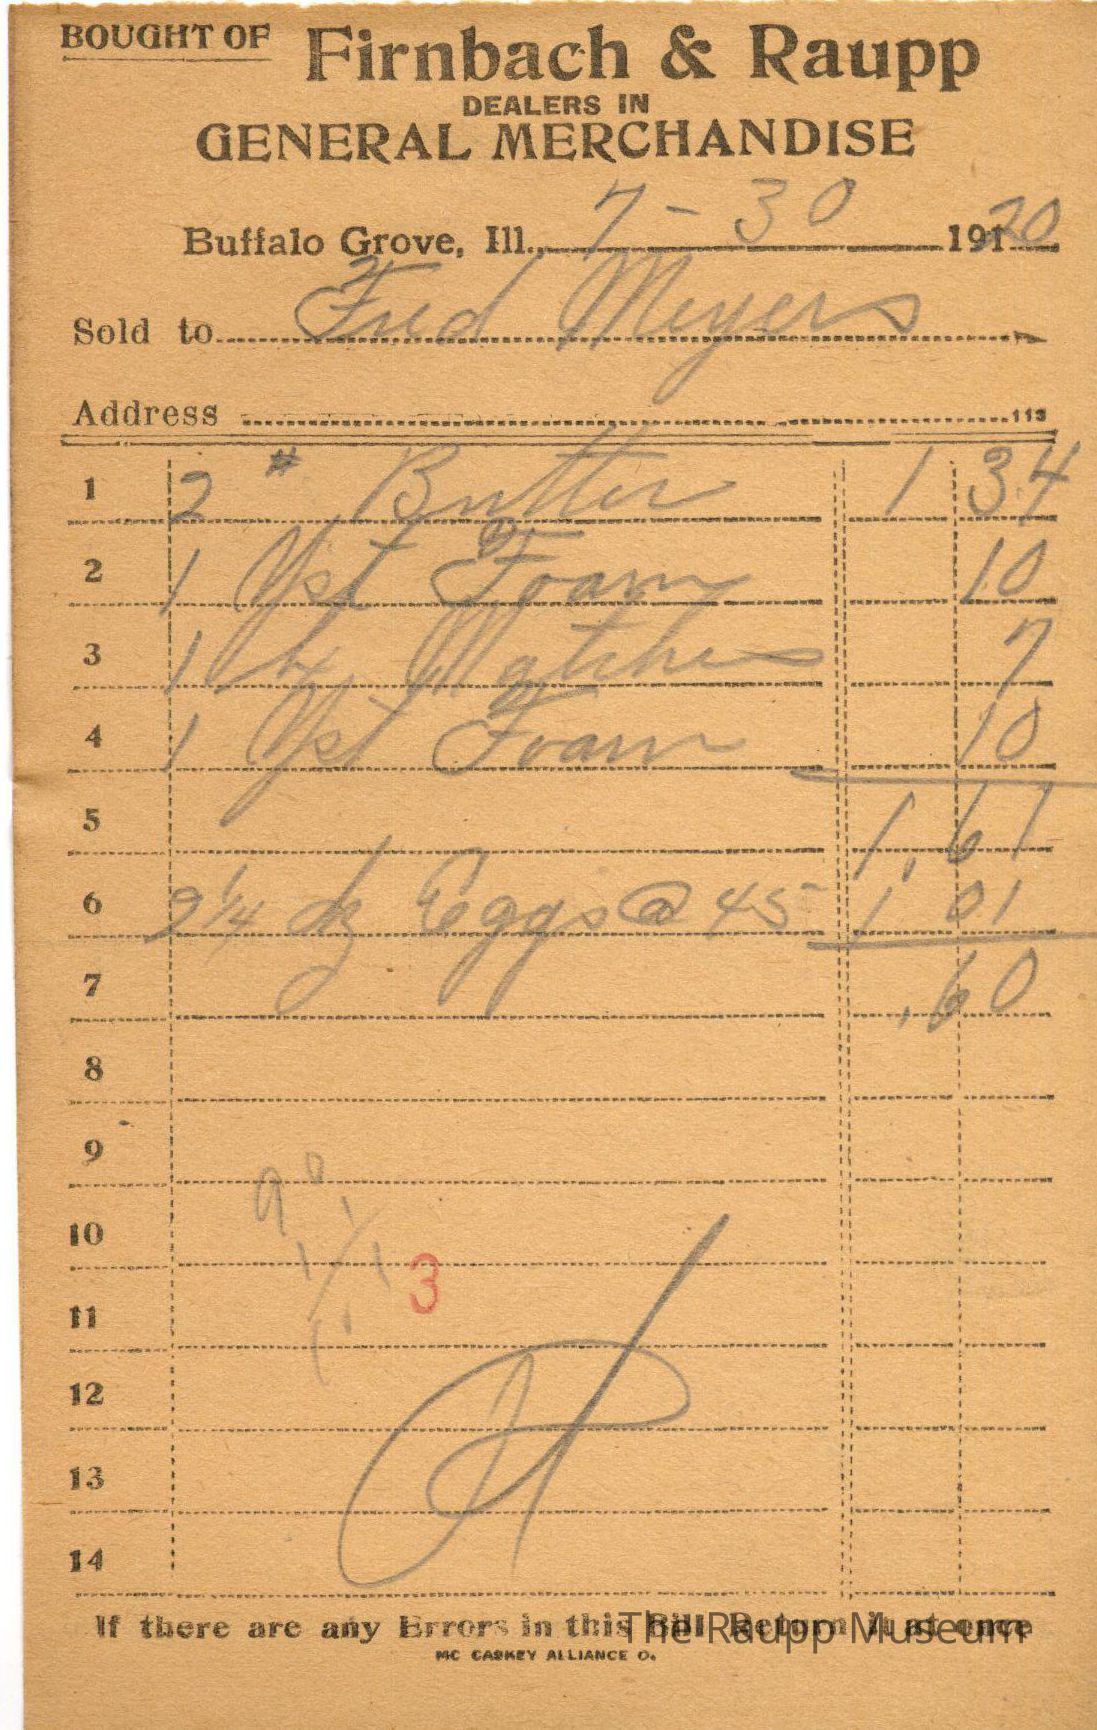 BOUGHT OF Firnbach & Raupp
DEALERS IN
GENERAL MERCHANDISE
Buffalo Grove, Ill., 7-30 1920
Sold to Fred Meyers
Address 113
1 2 # Butter 1 34
2 1 Yst Foam 10
3 1 bx Matches 7
4 1 Yst Foam 10
5 1.61
6 2 1/4 dz Eggs @ 45 1 01
7 .60
8
9
10
3
11
12
13
14
If there are any Errors in this Bill Return it at once
The Raupp Museum
MC CASKEY ALLIANCE O.